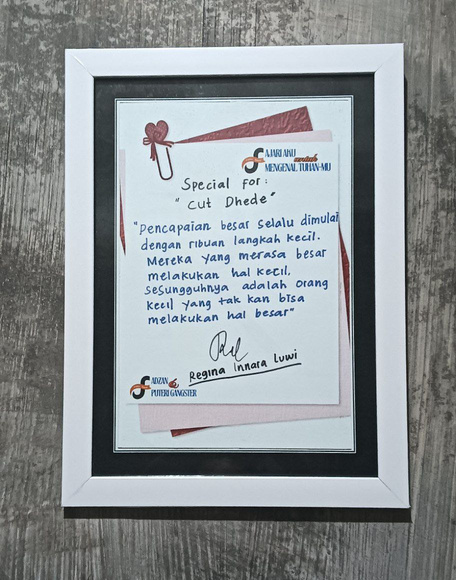 AJARI AKU
untuk
MENGENAL TUHAN-MU
Special For:
"Cut Dhede"
"Pencapaian besar selalu dimulai
dengan ribuan langkah kecil.
Mereka yang merasa besar
melakukan hal kecil.
Sesungguhnya adalah orang
kecil yang tak kan bisa
melakukan hal besar"
Regina Innara Luwi
ADZAN
PUTERI GANGSTER